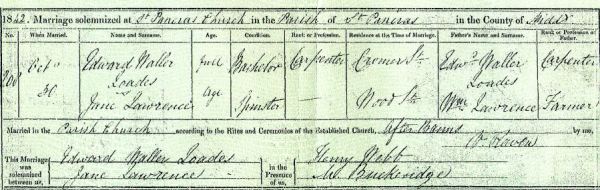 1842. Marriage solemnized at St Pancras Church in the Parish of St Pancras in the County of Middx
No. When Married. Name and Surname. Age. Condition. Rank or Profession. Residence at the Time of Marriage. Father's Name and Surname. Rank or Profession of Father.
Edward Waller Loades full Bachelor Carpenter Cromer St Edwd Waller Loades Carpenter
Jane Lawrence age Spinster — Wood St Wm Lawrence Farmer
Married in the Parish Church according to the Rites and Ceremonies of the Established Church, after Banns by me,
This Marriage was solemnized between us, Edward Waller Loades Jane Lawrence in the Presence of us, Henry Webb